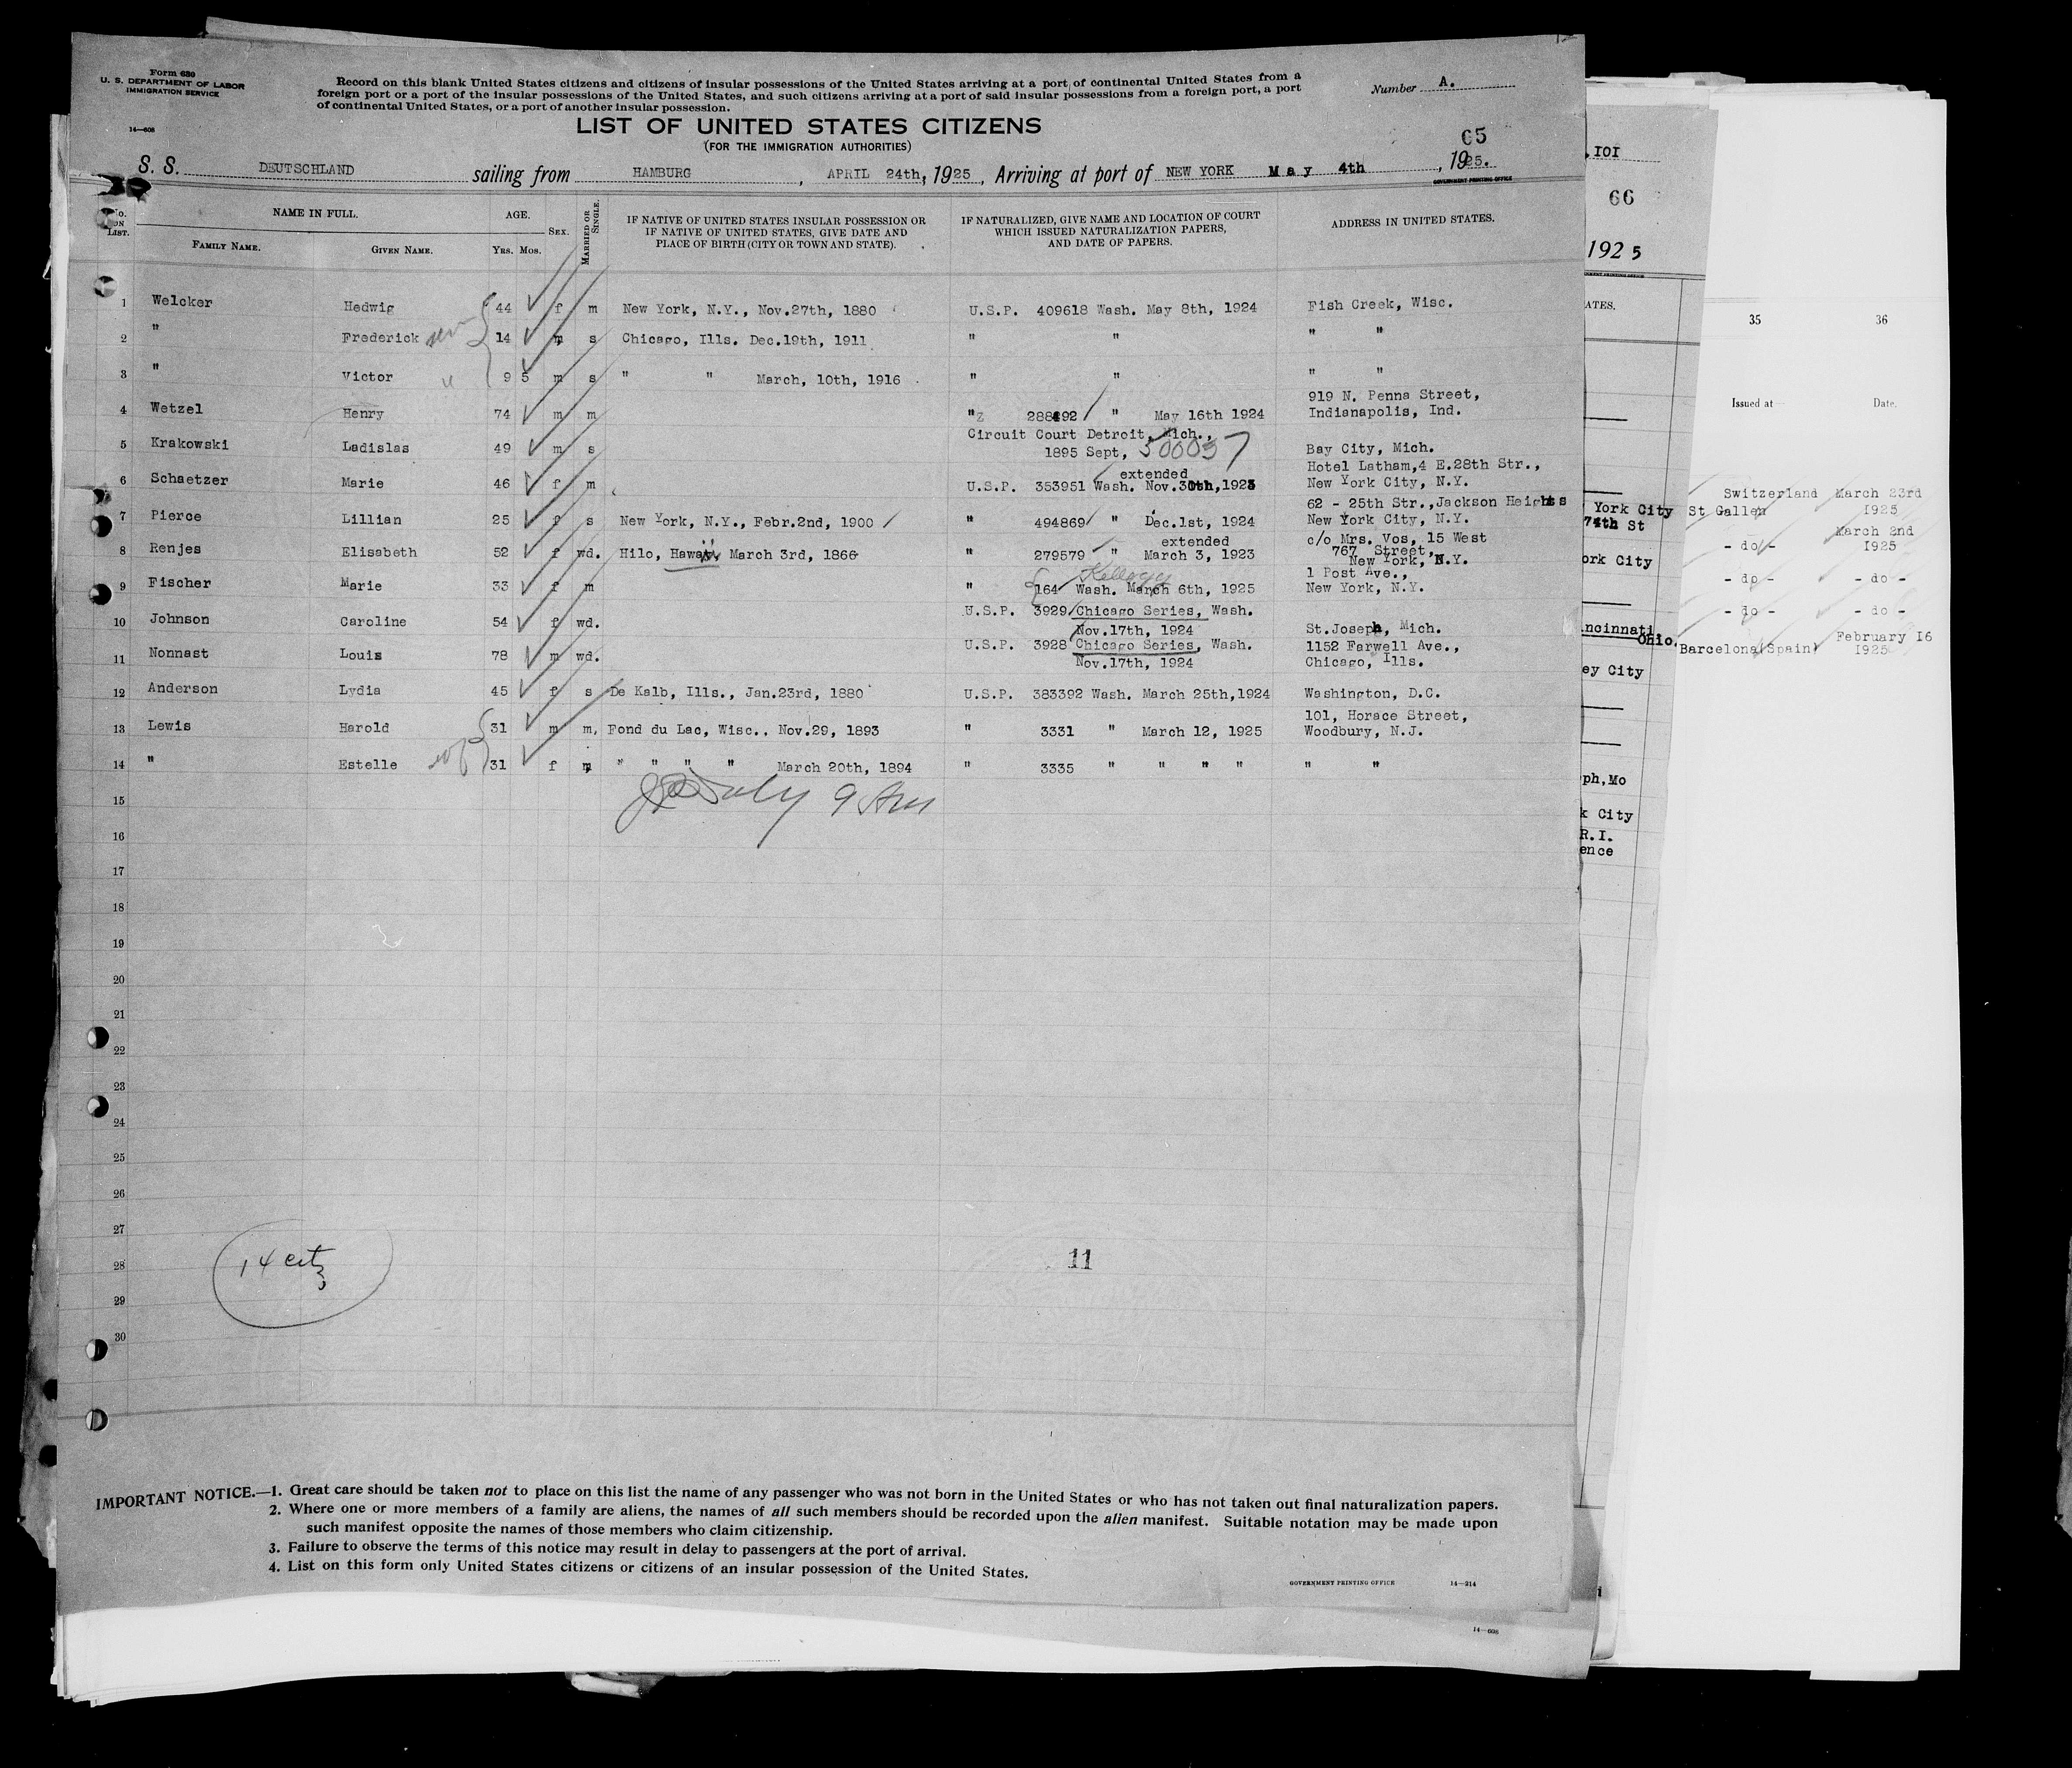 Form 630
U. S. DEPARTMENT OF LABOR
IMMIGRATION SERVICE
14—608
Record on this blank United States citizens and citizens of insular possessions of the United States arriving at a port of continental United States from a
foreign port or a port of the insular possessions of the United States, and such citizens arriving at a port of said insular possessions from a foreign port, a port
of continental United States, or a port of another insular possession.
Number A.
LIST OF UNITED STATES CITIZENS
(FOR THE IMMIGRATION AUTHORITIES)
65
S. S. DEUTSCHLAND sailing from HAMBURG, APRIL 24th, 1925, Arriving at port of NEW YORK May 4th, 1925.
GOVERNMENT PRINTING OFFICE
No. ON LIST. NAME IN FULL. AGE. SEX. MARRIED OR SINGLE. IF NATIVE OF UNITED STATES INSULAR POSSESSION OR IF NATIVE OF UNITED STATES, GIVE DATE AND PLACE OF BIRTH (CITY OR TOWN AND STATE). IF NATURALIZED, GIVE NAME AND LOCATION OF COURT WHICH ISSUED NATURALIZATION PAPERS, AND DATE OF PAPERS. ADDRESS IN UNITED STATES.
FAMILY NAME. GIVEN NAME. YRS. MOS.
1 Welcker Hedwig 44 f m New York, N.Y., Nov.27th, 1880 U.S.P. 409618 Wash. May 8th, 1924 Fish Creek, Wisc.
2 " Frederick 14 m s Chicago, Ills. Dec.19th, 1911 " " " "
3 " Victor 9 5 m s " " March, 10th, 1916 " " " "
919 N. Penna Street,
4 Wetzel Henry 74 m m " 288492 " May 16th 1924 Indianapolis, Ind.
Circuit Court Detroit, Mich.,
5 Krakowski Ladislas 49 m s 1895 Sept, 500057 Bay City, Mich.
extended Hotel Latham,4 E.28th Str.,
6 Schaetzer Marie 46 f m U.S.P. 353951 Wash. Nov.30th,1923 New York City, N.Y.
62 - 25th Str.,Jackson Heights
7 Pierce Lillian 25 f s New York, N.Y., Febr.2nd, 1900 " 494869 " Dec.1st, 1924 New York City, N.Y.
extended c/o Mrs. Vos, 15 West
8 Renjes Elisabeth 52 wd. Hilo, Hawaii, March 3rd, 1866 " 279579 " March 3, 1923 767 Street,
New York, N.Y.
Kellogg 1 Post Ave.,
9 Fischer Marie 33 f m " 164 Wash. March 6th, 1925 New York, N.Y.
U.S.P. 3929 Chicago Series, Wash.
10 Johnson Caroline 54 f wd. Nov.17th, 1924 St.Joseph, Mich.
U.S.P. 3928 Chicago Series, Wash. 1152 Farwell Ave.,
11 Nonnast Louis 78 m wd. Nov.17th, 1924 Chicago, Ills.
12 Anderson Lydia 45 f s De Kalb, Ills., Jan.23rd, 1880 U.S.P. 383392 Wash. March 25th,1924 Washington, D.C.
101, Horace Street,
13 Lewis Harold 31 m m, Fond du Lac, Wisc.. Nov.29, 1893 " 3331 " March 12, 1925 Woodbury, N.J.
14 " Estelle 31 f m " " " " March 20th, 1894 " 3335 " " " " " "
15
16
17
18
19
20
21
22
23
24
25
26
27
28
29
30
9 Am
14 citz
11
IMPORTANT NOTICE.—1. Great care should be taken not to place on this list the name of any passenger who was not born in the United States or who has not taken out final naturalization papers.
2. Where one or more members of a family are aliens, the names of all such members should be recorded upon the alien manifest. Suitable notation may be made upon
such manifest opposite the names of those members who claim citizenship.
3. Failure to observe the terms of this notice may result in delay to passengers at the port of arrival.
4. List on this form only United States citizens or citizens of an insular possession of the United States.
GOVERNMENT PRINTING OFFICE 14—214
14—608
101
66
1925
ATES.
York City
74th St
ork City
incinnati
Ohio.
ey City
ph,Mo
k City
R.I.
ence
35 36
Issued at Date.
Switzerland March 23rd
St Gallen 1925
March 2nd
- do - 1925
- do - - do -
- do - - do -
February 16
Barcelona(Spain) 1925